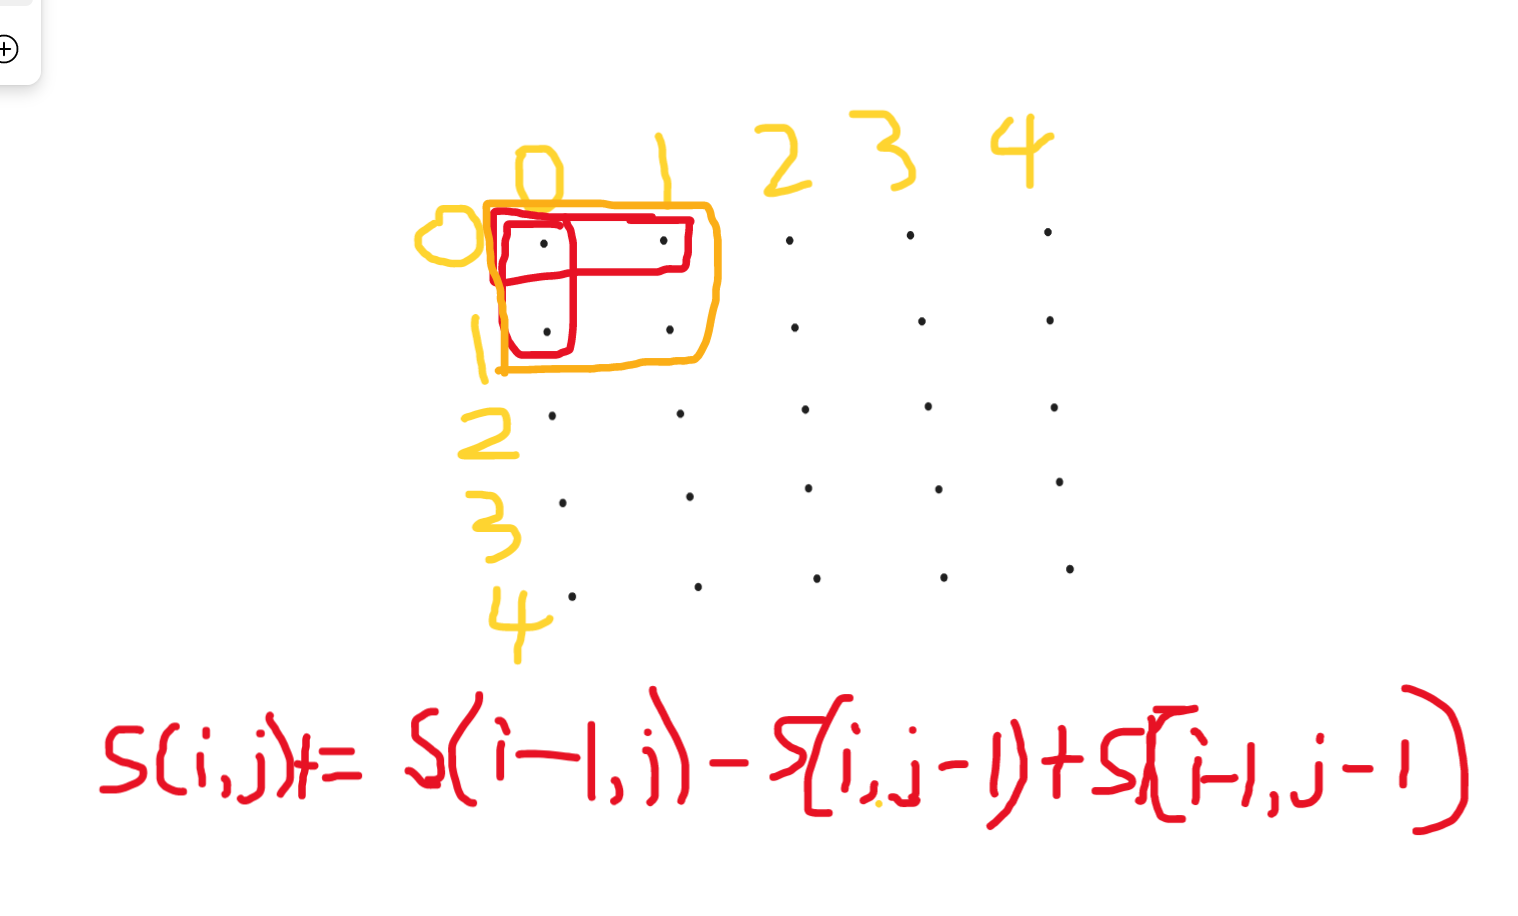 0 1 2 3 4
0
1
2
3
4
S(i,j)+= S(i-1,j)-S(i,j-1)+S(i-1,j-1)